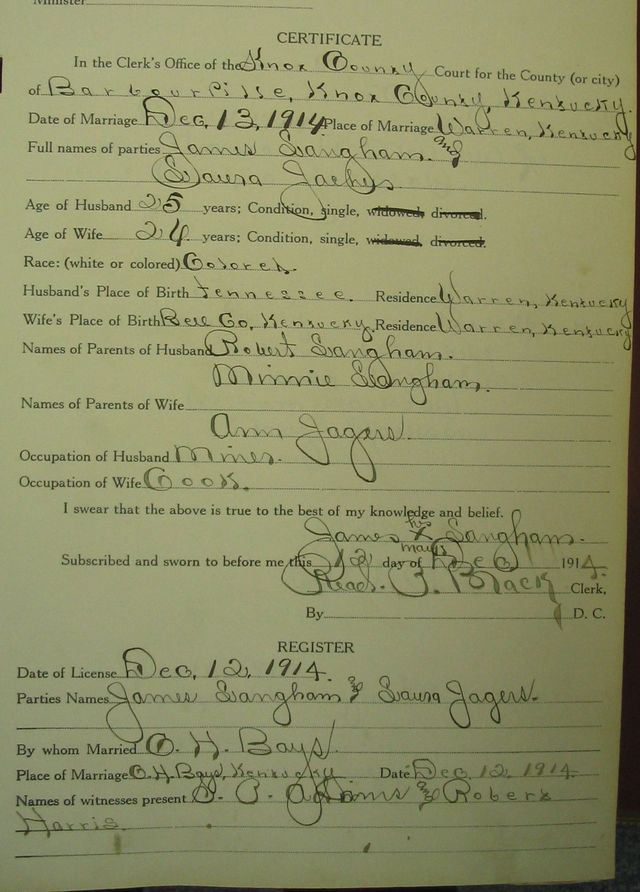 Minister
CERTIFICATE
In the Clerk's Office of the Knox County Court for the County (or city)
of Barbourville, Knox County, Kentucky.
Date of Marriage Dec, 13, 1914 Place of Marriage Warren, Kentucky
Full names of parties James Langham and
Laura Jagers
Age of Husband 25 years; Condition, single, widowed, divorced.
Age of Wife 24 years; Condition, single, widowed, divorced.
Race: (white or colored) Colored.
Husband's Place of Birth Tennessee. Residence Warren, Kentucky
Wife's Place of Birth Bell Co, Kentucky. Residence Warren, Kentucky
Names of Parents of Husband Robert Langham.
Minnie Langham.
Names of Parents of Wife
Ann Jagers.
Occupation of Husband Miner.
Occupation of Wife Cook.
I swear that the above is true to the best of my knowledge and belief.
James his X mark Langham.
Subscribed and sworn to before me this 12 day of Dec 1914.
Read P. Black Clerk,
By D. C.
REGISTER
Date of License Dec, 12, 1914.
Parties Names James Langham and Laura Jagers.
By whom Married O. H. Bays.
Place of Marriage O. H. Bays, Kentucky Date Dec, 12, 1914
Names of witnesses present and Robert
Harris.